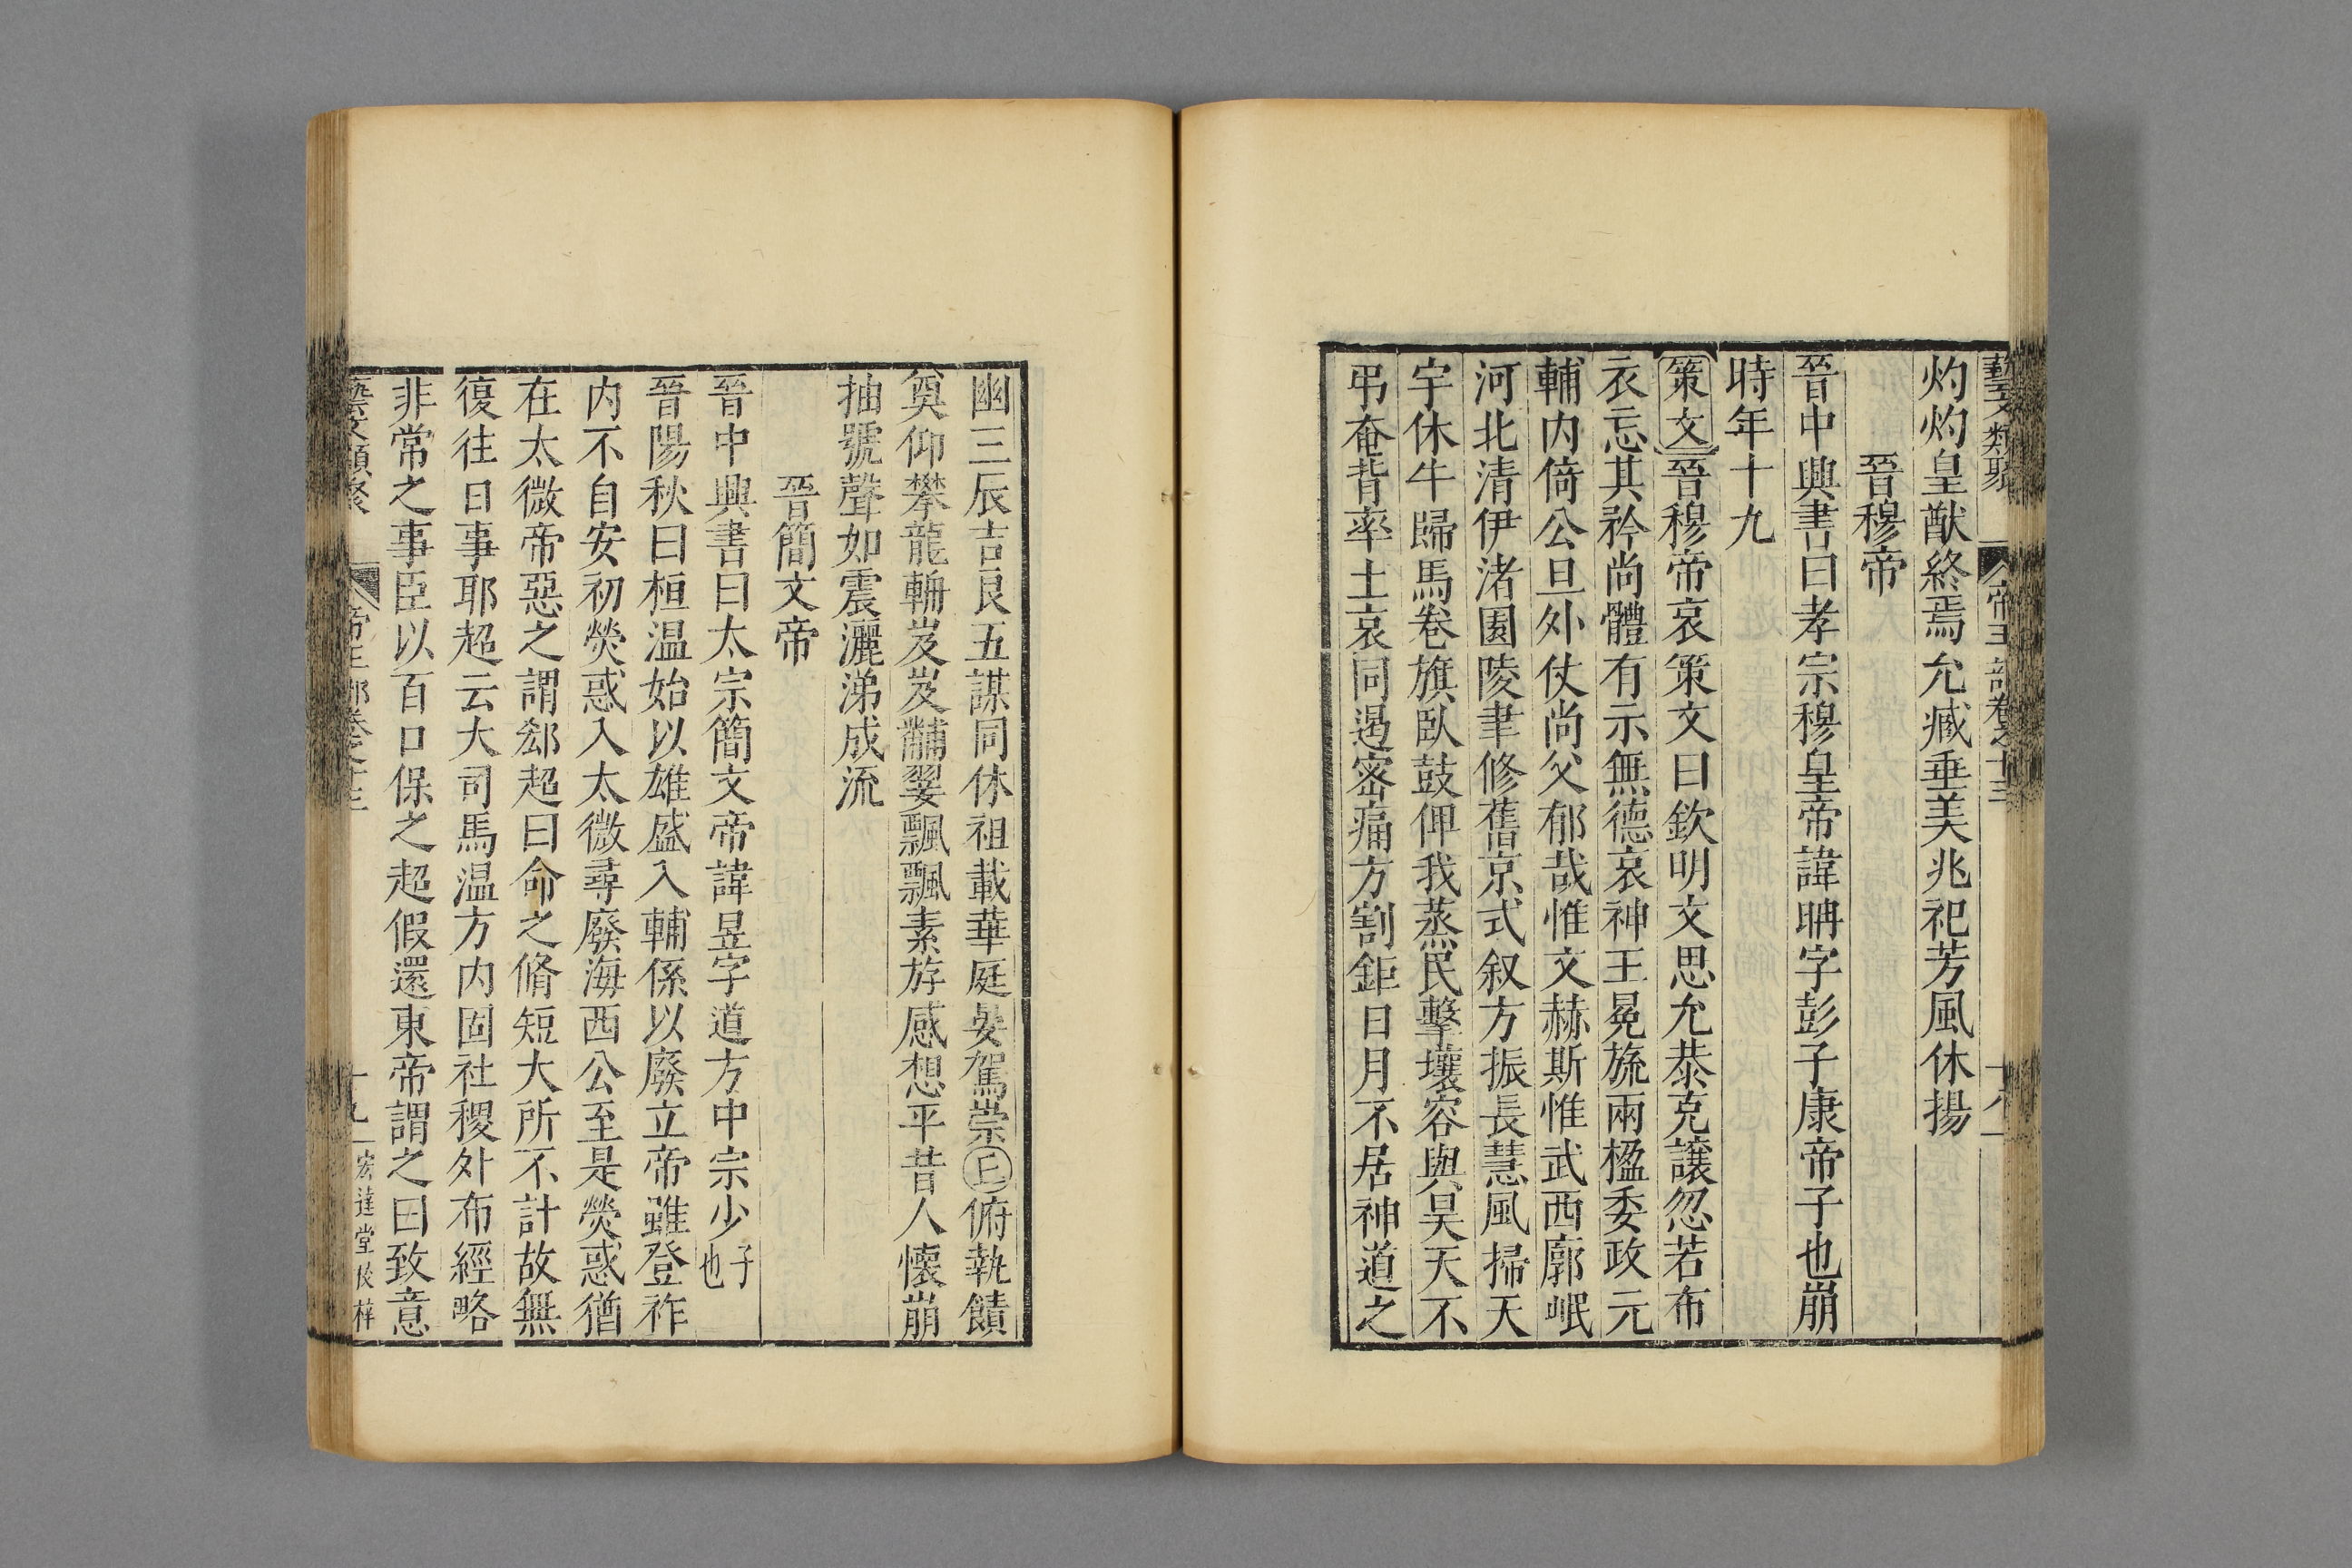 藝文類聚 帝王部卷之十三 十八
灼灼皇猷終焉允臧垂美兆祀芳風休揚
晉穆帝
晉中興書曰孝宗穆皇帝諱聃字彭子康帝子也崩
時年十九
策文晉穆帝哀策文曰欽明文思允恭克讓忽若布
衣忘其矜尚體有示無德哀神王冕旒兩楹委政元
輔内倚公旦外仗尚父郁哉惟文赫斯惟武西廓岷
河北清伊渚園陵聿修舊京式叙方振長慧風掃天
宇休牛歸馬卷旗臥鼓俾我蒸民擊壤容與昊天不
弔奄背率土哀同遏密痛方割鉅日月不居神道之
幽三辰吉良五謀同休祖載華庭晏駕崇丘俯執饋
奠仰攀龍輈岌岌黼翣飄飄素斿感想平昔人懷崩
抽號聲如震灑涕成流
晉簡文帝
晉中興書曰太宗簡文帝諱昱字道方中宗少子也
晉陽秋曰桓温始以雄盛入輔係以廢立帝雖登祚
内不自安初熒惑入太微尋廢海西公至是熒惑猶
在太微帝惡之謂郄超曰命之脩短大所不計故無
復往日事耶超云大司馬温方内固社稷外布經略
非常之事臣以百口保之超假還東帝謂之曰致意
藝文類聚 帝王部卷之十三 十九 宏達堂校梓